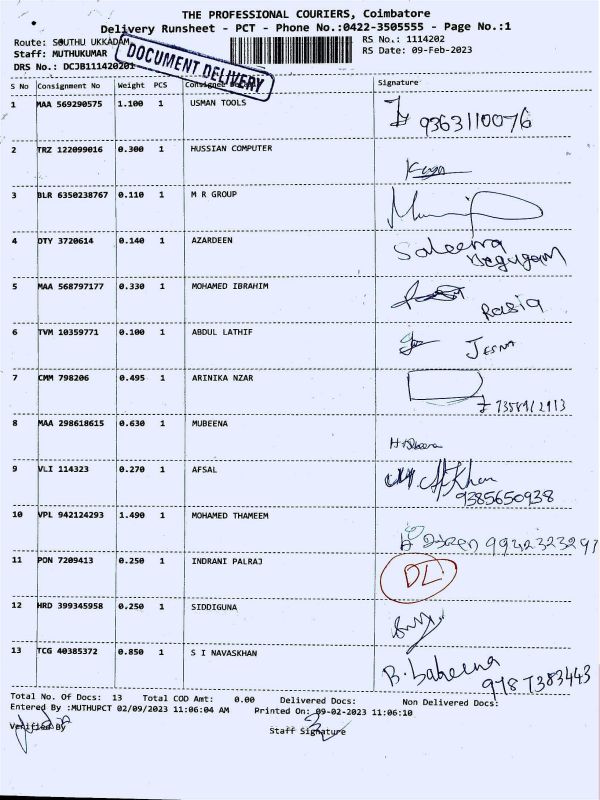 THE PROFESSIONAL COURIERS, Coimbatore
Delivery Runsheet - PCT - Phone No.:0422-3505555 - Page No.:1
Route: SOUTHU UKKADAM
RS No.: 1114202
Staff: MUTHUKUMAR
RS Date: 09-Feb-2023
DRS No.: DCJB111420201
DOCUMENT DELIVERY
S No Consignment No Weight PCS Consignee Signature
1 MAA 569290575 1.100 1 USMAN TOOLS 9363110076
2 TRZ 122099016 0.300 1 HUSSIAN COMPUTER
3 BLR 6350238767 0.110 1 M R GROUP
4 OTY 3720614 0.140 1 AZARDEEN Saleema
Begugam
5 MAA 568797177 0.330 1 MOHAMED IBRAHIM Rasiq
6 TVM 10359771 0.100 1 ABDUL LATHIF JESNA
7 CMM 798206 0.495 1 ARINIKA NZAR
8 MAA 298618615 0.630 1 MUBEENA
9 VLI 114323 0.270 1 AFSAL Khan
9385650938
10 VPL 942124293 1.490 1 MOHAMED THAMEEM 9942323297
11 PON 7209413 0.250 1 INDRANI PALRAJ DL
12 HRD 399345958 0.250 1 SIDDIGUNA
13 TCG 40385372 0.850 1 S I NAVASKHAN B. Labeena
9787383443
Total No. Of Docs: 13 Total COD Amt: 0.00 Delivered Docs: Non Delivered Docs:
Entered By :MUTHUPCT 02/09/2023 11:06:04 AM Printed On: 09-02-2023 11:06:10
Verified By
Staff Signature